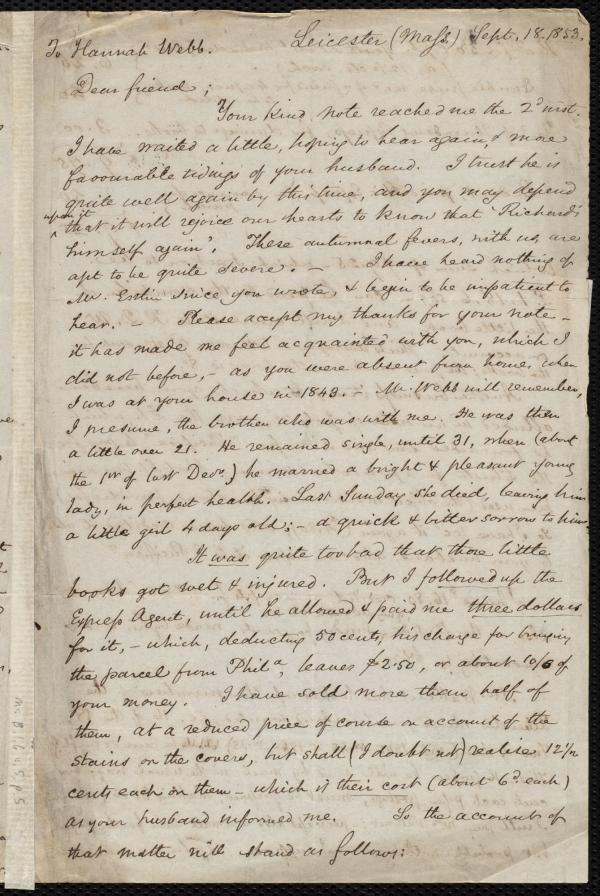 To Hannah Webb. Leicester (Mass.) Sept. 18. 1853.
Dear friend;
Your kind note reached me the 2d inst.
I have waited a little, hoping to hear again, & more
favourable tidings of your husband. I trust he is
quite well again by this time, and you may depend
upon it
^ that it will rejoice our hearts to know that 'Richard's
himself again'. These autumnal fevers, with us, are
apt to be quite severe. – I have heard nothing of
Mr. Estlin since you wrote, & begin to be impatient to
hear. – Please accept my thanks for your note –
it has made me feel acquainted with you, which I
did not before, – as you were absent from home, when
I was at your house in 1843. – Mr. Webb will remember,
I presume, the brother who was with me. He was then
a little over 21. He remained single, until 31, when (about
the 1st of last Decr.) he married a bright & pleasant young
lady, in perfect health. Last Sunday she died, leaving him
a little girl 4 days old; – a quick & bitter sorrow to him.
It was quite too bad that those little
books got wet & injured. But I followed up the
Express Agent, until he allowed & paid me three dollars
for it, – which, deducting 50 cents, his charge for bringing
the parcel from Phila, leaves $2.50, or about 10/6 of
your money. I have sold more than half of
them, at a reduced price of course on account of the
stains on the covers, but shall (I doubt not) realise 12½
cents each on them – which is their cost (about 6d. each)
as your husband informed me. So the account of
that matter will stand as follows: